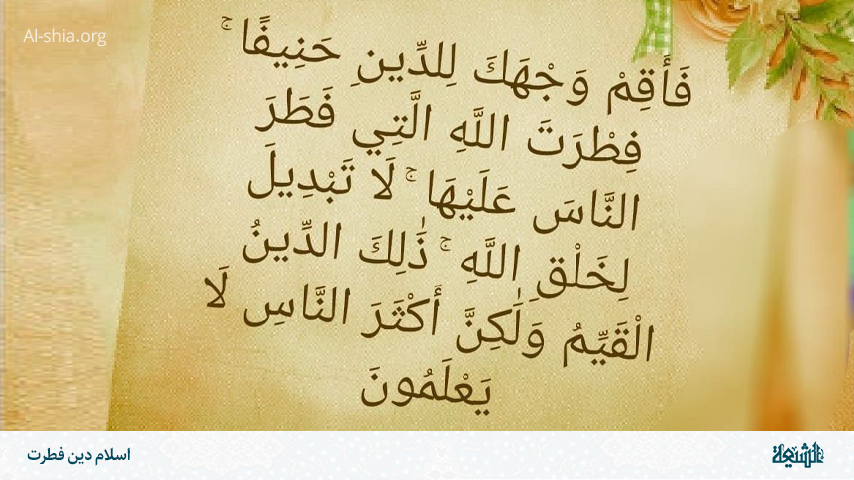 Al-shia.org
فَأَقِمْ وَجْهَكَ لِلدِّينِ حَنِيفًا ۚ
فِطْرَتَ اللَّهِ الَّتِي فَطَرَ
النَّاسَ عَلَيْهَا ۚ لَا تَبْدِيلَ
لِخَلْقِ اللَّهِ ۚ ذَٰلِكَ الدِّينُ
الْقَيِّمُ وَلَٰكِنَّ أَكْثَرَ النَّاسِ لَا
يَعْلَمُونَ
الشیعة
اسلام دین فطرت